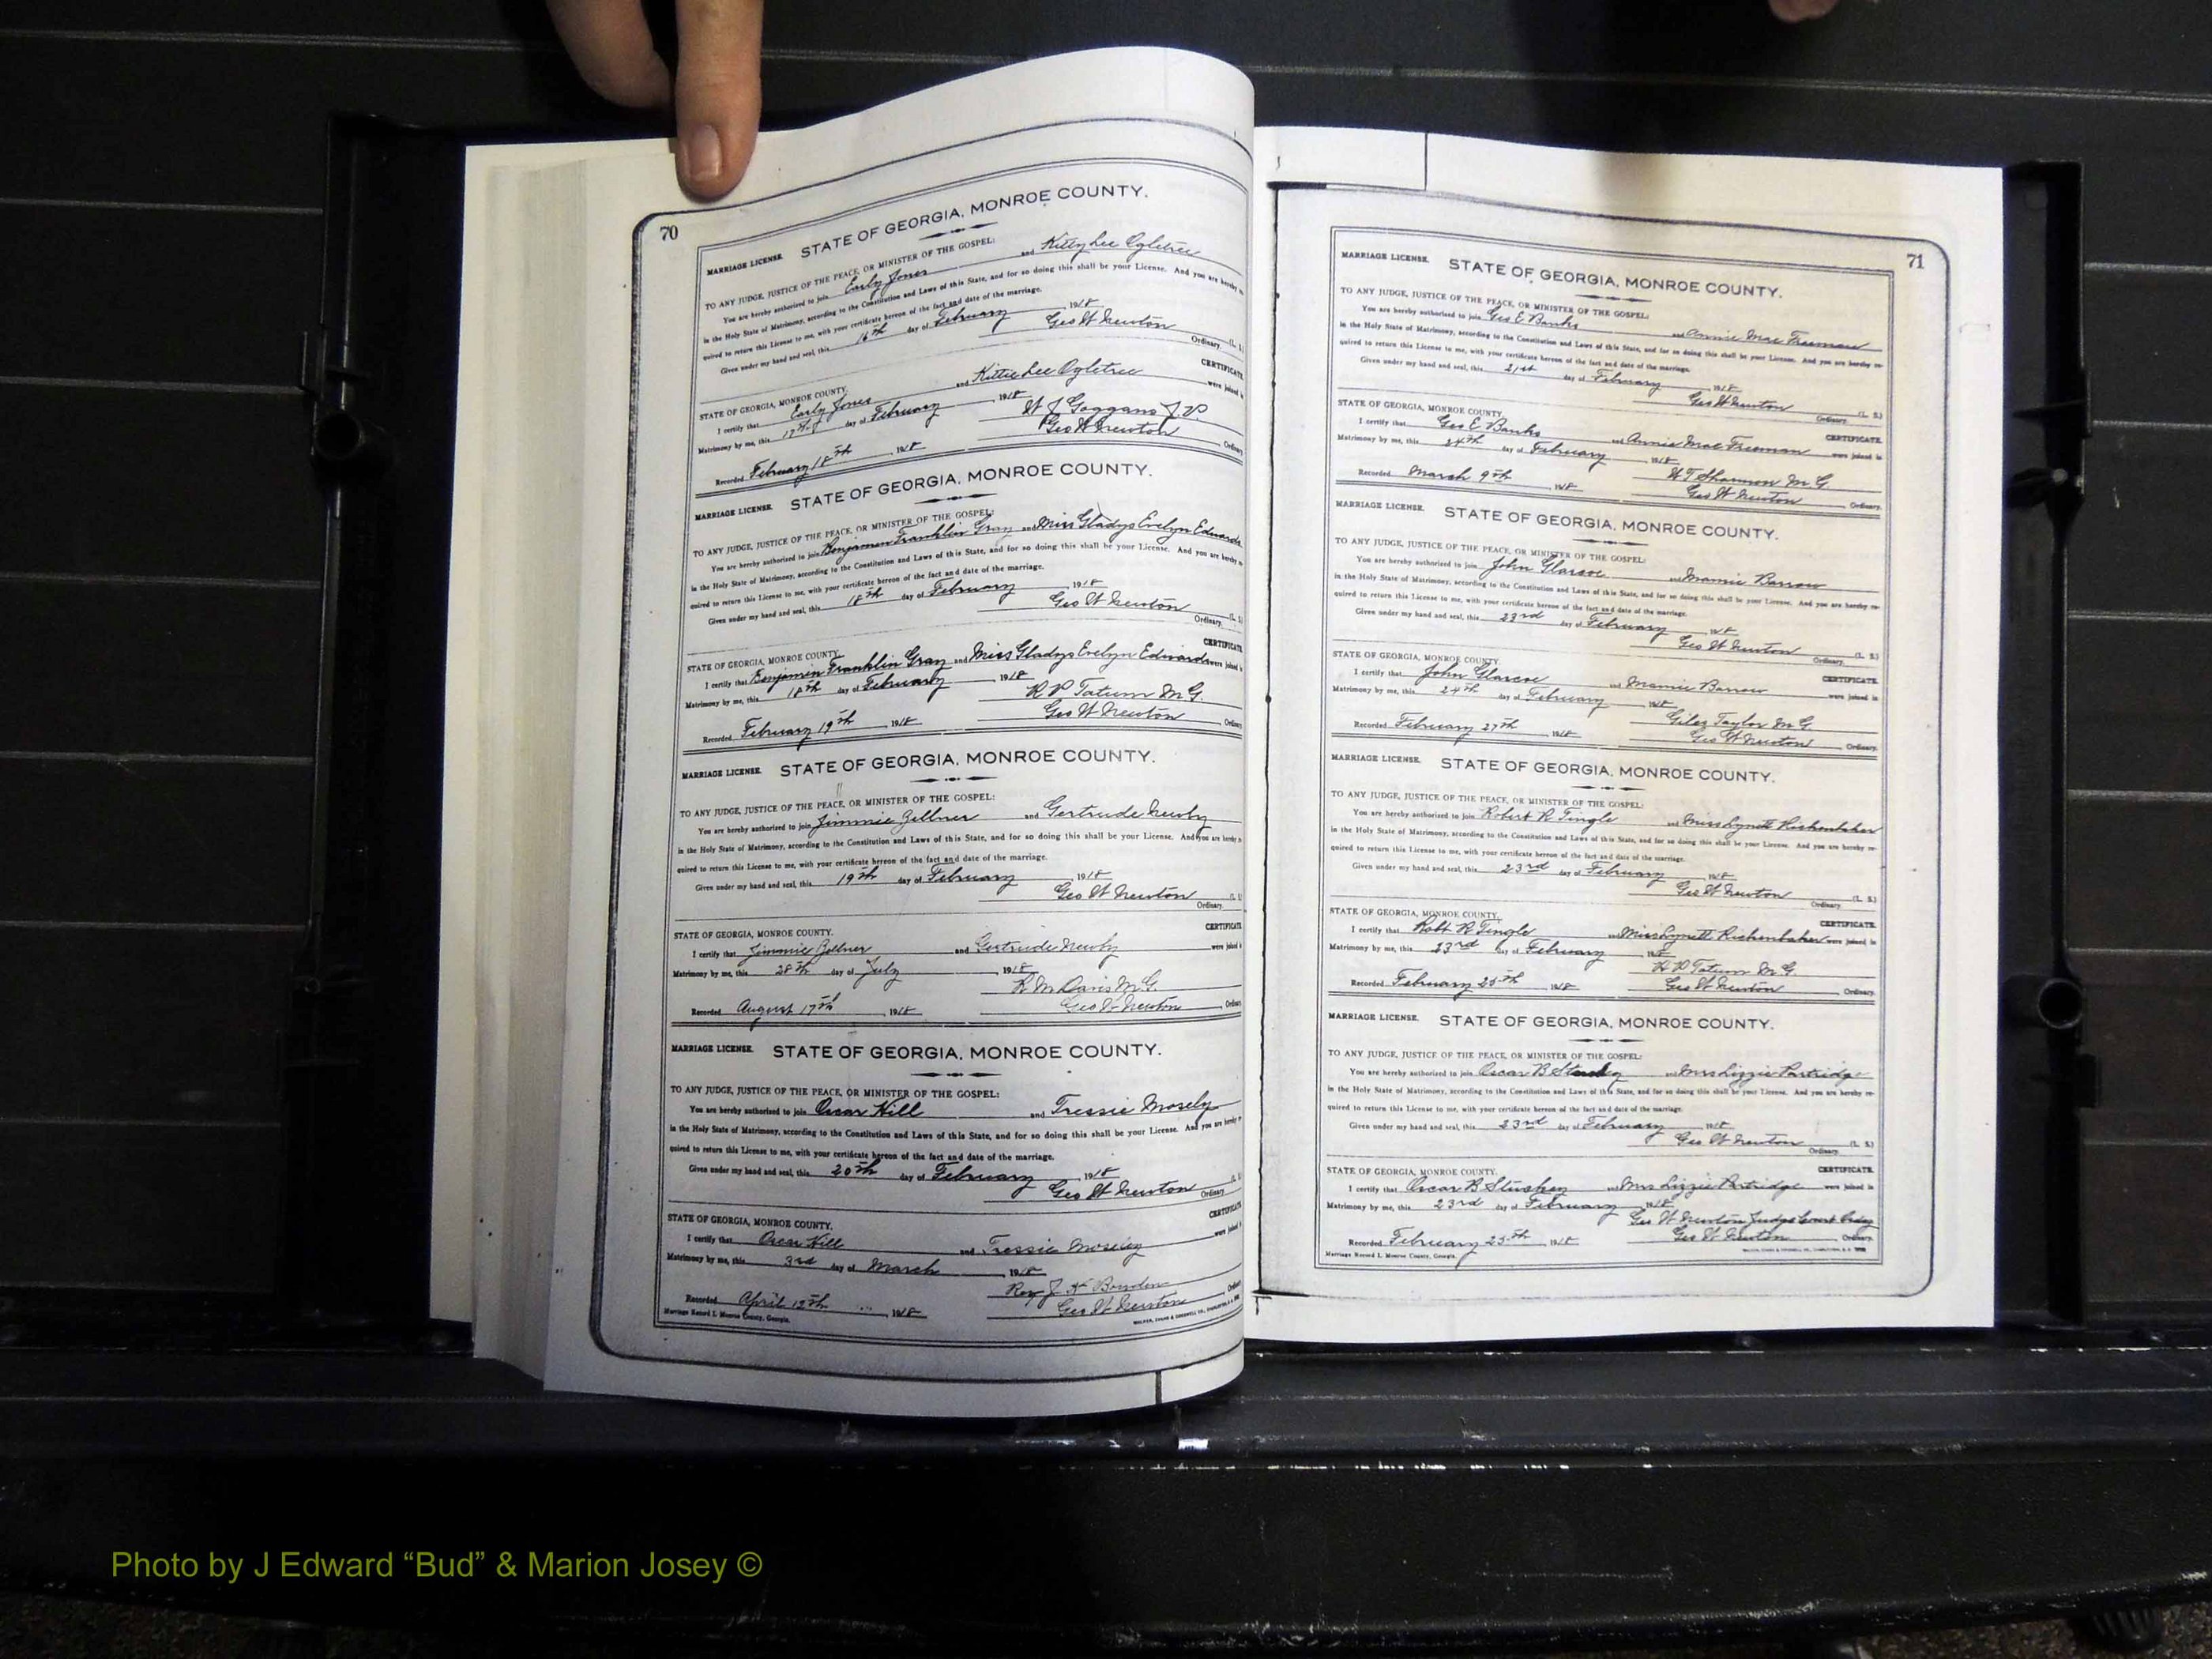 70
MARRIAGE LICENSE. STATE OF GEORGIA, MONROE COUNTY.
TO ANY JUDGE, JUSTICE OF THE PEACE, OR MINISTER OF THE GOSPEL:
You are hereby authorized to join Early Jones and Kitty Lee Ogletree
in the Holy State of Matrimony, according to the Constitution and Laws of this State, and for so doing this shall be your License. And you are hereby re-
quired to return this License to me, with your certificate hereon of the fact and date of the marriage.
Given under my hand and seal, this 16th day of February 1918
Geo W Newton (L. S.)
Ordinary.
STATE OF GEORGIA, MONROE COUNTY. CERTIFICATE
I certify that Early Jones and Kittie Lee Ogletree were joined in
Matrimony by me, this 17th day of February, 1918
W J Goggans J.P.
Recorded February 18th, 1918 Geo W Newton Ordinary
MARRIAGE LICENSE. STATE OF GEORGIA, MONROE COUNTY.
TO ANY JUDGE, JUSTICE OF THE PEACE, OR MINISTER OF THE GOSPEL:
You are hereby authorized to join Benjamin Franklin Gray and Miss Gladys Evelyn Edwards
in the Holy State of Matrimony, according to the Constitution and Laws of this State, and for so doing this shall be your License. And you are hereby re-
quired to return this License to me, with your certificate hereon of the fact and date of the marriage.
Given under my hand and seal, this 18th day of February, 1918
Geo W Newton (L. S.)
Ordinary.
STATE OF GEORGIA, MONROE COUNTY. CERTIFICATE
I certify that Benjamin Franklin Gray and Miss Gladys Evelyn Edwards were joined in
Matrimony by me, this 18th day of February, 1918
R P Tatum M.G.
Recorded February 19th, 1918 Geo W Newton, Ordinary
MARRIAGE LICENSE. STATE OF GEORGIA, MONROE COUNTY.
TO ANY JUDGE, JUSTICE OF THE PEACE, OR MINISTER OF THE GOSPEL:
You are hereby authorized to join Jimmie Zellner and Gertrude Newby
in the Holy State of Matrimony, according to the Constitution and Laws of this State, and for so doing this shall be your License. And you are hereby re-
quired to return this License to me, with your certificate hereon of the fact and date of the marriage.
Given under my hand and seal, this 19th day of February, 1918
Geo W Newton (L. S.)
Ordinary.
STATE OF GEORGIA, MONROE COUNTY. CERTIFICATE
I certify that Jimmie Zellner and Gertrude Newby were joined in
Matrimony by me, this 28th day of July, 1918
R M Davis M.G.
Recorded August 17th, 1918 Geo W Newton, Ordinary
MARRIAGE LICENSE. STATE OF GEORGIA, MONROE COUNTY.
TO ANY JUDGE, JUSTICE OF THE PEACE, OR MINISTER OF THE GOSPEL:
You are hereby authorized to join Oscar Hill and Tressie Mosely
in the Holy State of Matrimony, according to the Constitution and Laws of this State, and for so doing this shall be your License. And you are hereby re-
quired to return this License to me, with your certificate hereon of the fact and date of the marriage.
Given under my hand and seal, this 20th day of February, 1918
Geo W Newton (L. S.)
Ordinary
STATE OF GEORGIA, MONROE COUNTY. CERTIFICATE
I certify that Oscar Hill and Tressie Moseley were joined in
Matrimony by me, this 3rd day of March, 1918
Rev J H
Recorded April 12th, 1918 Geo W Newton Ordinary
Marriage Record I. Monroe County, Georgia.
71
MARRIAGE LICENSE. STATE OF GEORGIA, MONROE COUNTY.
TO ANY JUDGE, JUSTICE OF THE PEACE, OR MINISTER OF THE GOSPEL:
You are hereby authorized to join Geo E Banks and Annie Mae Freeman
in the Holy State of Matrimony, according to the Constitution and Laws of this State, and for so doing this shall be your License. And you are hereby re-
quired to return this License to me, with your certificate hereon of the fact and date of the marriage.
Given under my hand and seal, this 21st day of February, 1918
Geo W Newton (L. S.)
Ordinary.
STATE OF GEORGIA, MONROE COUNTY. CERTIFICATE.
I certify that Geo E Banks and Annie Mae Freeman were joined in
Matrimony by me, this 24th day of February, 1918
W T Shannon M.G.
Recorded March 9th, 1918 Geo W Newton Ordinary.
MARRIAGE LICENSE. STATE OF GEORGIA, MONROE COUNTY.
TO ANY JUDGE, JUSTICE OF THE PEACE, OR MINISTER OF THE GOSPEL:
You are hereby authorized to join John Glascoe and Mamie Barrow
in the Holy State of Matrimony, according to the Constitution and Laws of this State, and for so doing this shall be your License. And you are hereby re-
quired to return this License to me, with your certificate hereon of the fact and date of the marriage.
Given under my hand and seal, this 23rd day of February, 1918
Geo W Newton (L. S.)
Ordinary.
STATE OF GEORGIA, MONROE COUNTY. CERTIFICATE.
I certify that John Glascoe and Mamie Barrow were joined in
Matrimony by me, this 24th day of February, 1918
Giles Taylor M.G.
Recorded February 27th, 1918 Geo W Newton, Ordinary.
MARRIAGE LICENSE. STATE OF GEORGIA, MONROE COUNTY.
TO ANY JUDGE, JUSTICE OF THE PEACE, OR MINISTER OF THE GOSPEL:
You are hereby authorized to join Robert R Tingle and Miss Lynett Richenbaker
in the Holy State of Matrimony, according to the Constitution and Laws of this State, and for so doing this shall be your License. And you are hereby re-
quired to return this License to me, with your certificate hereon of the fact and date of the marriage.
Given under my hand and seal, this 23rd day of February, 1918
Geo W Newton (L. S.)
Ordinary.
STATE OF GEORGIA, MONROE COUNTY. CERTIFICATE.
I certify that Robt R Tingle and Miss Lynett Richenbaker were joined in
Matrimony by me, this 23rd day of February, 1918
R P Tatum M.G.
Recorded February 25th, 1918 Geo W Newton, Ordinary.
MARRIAGE LICENSE. STATE OF GEORGIA, MONROE COUNTY.
TO ANY JUDGE, JUSTICE OF THE PEACE, OR MINISTER OF THE GOSPEL:
You are hereby authorized to join Oscar B Stuckey and Mrs Lizzie Partridge
in the Holy State of Matrimony, according to the Constitution and Laws of this State, and for so doing this shall be your License. And you are hereby re-
quired to return this License to me, with your certificate hereon of the fact and date of the marriage.
Given under my hand and seal, this 23rd day of February, 1918
Geo W Newton (L. S.)
Ordinary.
STATE OF GEORGIA, MONROE COUNTY. CERTIFICATE.
I certify that Oscar B Stuckey and Mrs Lizzie Partridge were joined in
Matrimony by me, this 23rd day of February, 1918
Geo W Newton Judge Court Ordny
Recorded February 25th, 1918 Geo W Newton Ordinary.
Marriage Record I. Monroe County, Georgia.
Photo by J Edward “Bud” & Marion Josey ©